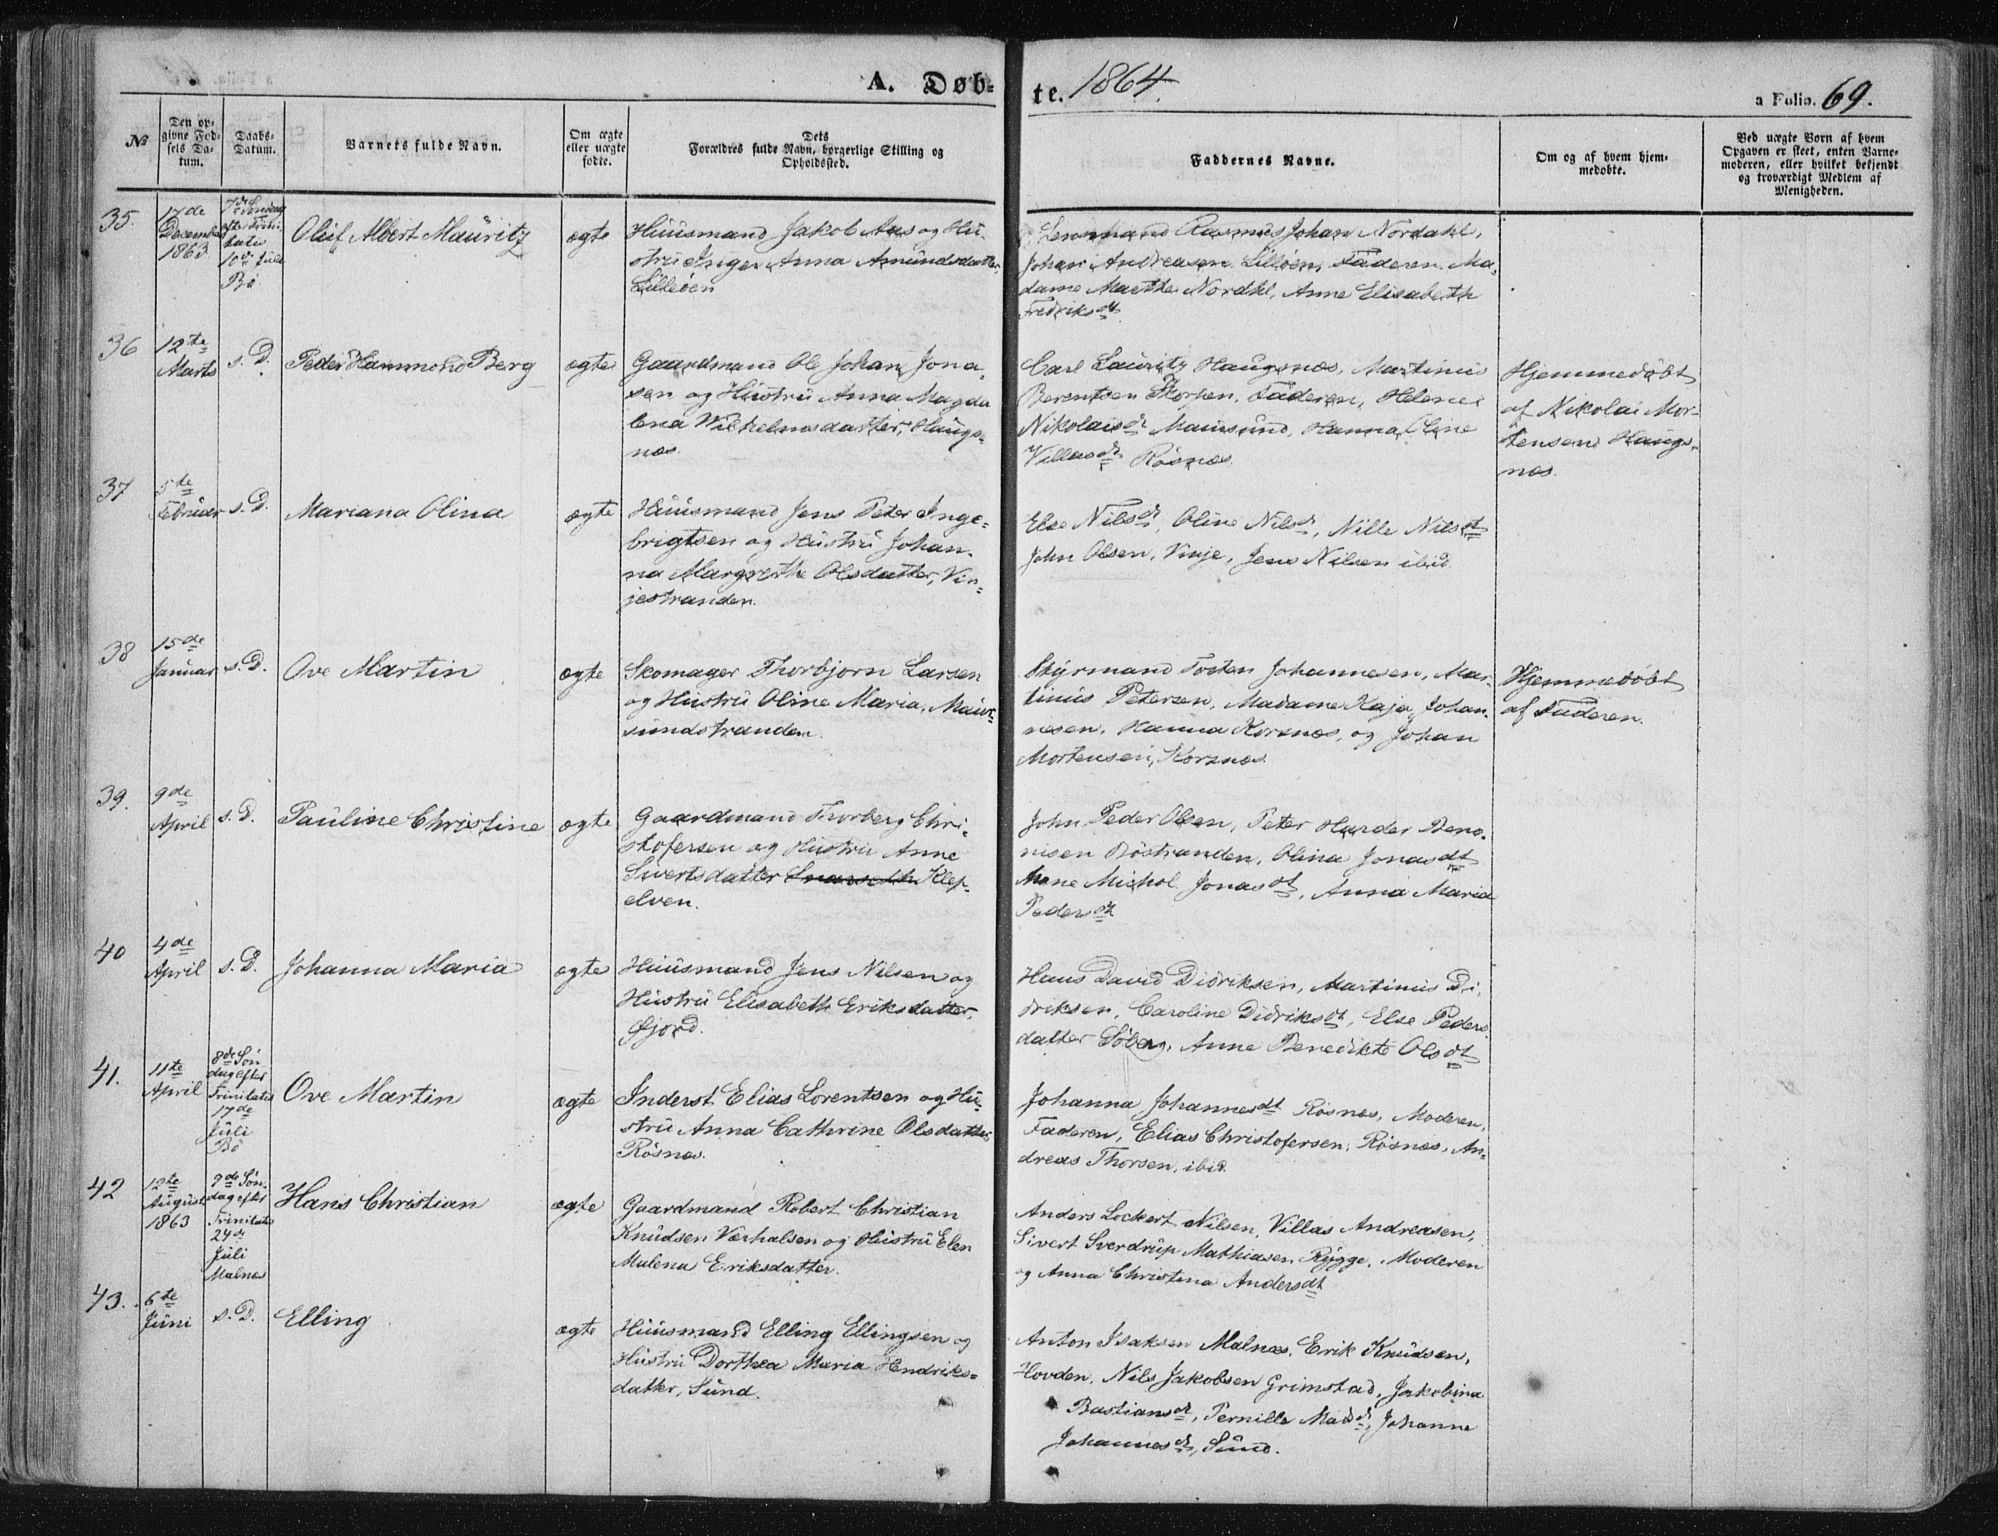 A. Døb-
te. 1864.
a Folio. 69.
№
Den op-
givne Fød-
sels Da-
tum.
Daabs-
Datum.
Barnets fulde Navn.
Om ægte
eller uægte
fødte.
Dets
Forældres fulde Navn, borgerlige Stilling og
Opholdssted.
Faddernes Navne.
Om og af hvem hjem-
medøbte.
Ved uægte Børn af hvem
Opgaven er skeet, enten Barne-
moderen, eller hvilket bekjendt
og troværdigt Medlem af
Menigheden.
35.
17de
December
1863
7de Søndag
efter Trini-
tatis
10de Juli
Bø
Oluf Albert Mauritz
ægte
Huusmand Jakob Aas og Hu-
stru Inger Anna Amundsdatter,
Lilleøen
Lensmand Rasmus Johan Nordahl,
Johan Andreasen Lilløen, Faderen, Ma-
dame Marthe Nordhl, Anne Elisabeth
Fredriksdt
36
12te
Marts
s. D.
Peder Hammond Berg
ægte
Gaardmand Ole Johan Jona-
sen og Hustru Anna Magda
lena Wilhelmsdatter, Haugs-
næs.
Carl Lauritz Haugsnæs, Martinus
Berentsen Skorpen, Faderen, Helene
Nikolaisdt Maursund, Hanna Oline
Villasdt Røsnæs.
Hjemmedøbt
af Nikolai Mor-
tensen Haugs-
næs.
37
5de
Februar
s. D.
Mariana Olina
ægte
Huusmand Jens Peter Inge-
brigtsen og Hustru Johan-
na Margrethe Olsdatter, Vin-
jestranden.
Else Nilsdt, Oline Nilsdt, Nille Nilsdt
John Olsen, Vinje, Jens Nilsen ibid.
38
15de
Januar
s. D.
Ove Martin
ægte
Skomager Thorbjørn Larsen
og Hustru Oline Maria, Maur-
sundstranden.
Styrmand Tosten Johannesen, Mar-
tinus Petersen, Madame Kaja Johan-
nesen, Hanna Korsnæs, og Johan
Mortensen, Korsnæs.
Hjemmedøbt
af Faderen.
39.
9de
April
s. D.
Pauline Christine
ægte
Gaardmand Thorberg Chri-
stofersen og Hustru Anne
Sivertsdatter Klep-
elven.
John Peder Olsen, Peter Harder Beno-
nisen Røstranden, Olina Jonasdt
Anne Michol Jonasdt, Anna Maria
Pedersdt
40
4de
April
s. D.
Johanna Maria
ægte
Huusmand Jens Nilsen og
Hustru Elisabeth Eriksdatter,
Øfjord.
Hans David Didriksen, Martinus Di-
driksen, Caroline Didriksdt, Else Peders
datter Søberg, Anne Benedikte Olsdt
41.
11te
April
8de Søn
dag efter
Trinitatis
17de
Juli
Bø
Ove Martin
ægte
Inderst Elias Lorentsen og Hu-
stru Anna Cathrine Olsdatter,
Røsnæs.
Johanna Johannesdt Røsnæs, Moderen,
Faderen, Elias Christofersen, Røsnæs, An-
dreas Thorsen, ibid.
42
12te
August
1863
9de Søn-
dag efter
Trinitatis
24de
Juli
Malnæs
Hans Christian
ægte
Gaardmand Robert Christian
Knudsen Værhalsen og Hustru Elen
Malena Eriksdatter.
Anders Lockert Nilsen, Villas Andreasen,
Sivert Sverdrup Mathiasen Rygge, Moderen
og Anna Christina Andersdt
43.
6te
Juni
s. D.
Elling
ægte
Huusmand Elling Ellingsen og
Hustru Dorthea Maria Hendriks-
datter, Sund.
Anton Isaksen Malnæs, Erik Knudsen,
Hovden, Nils Jakobsen Grimstad, Jakobina
Bastiansdt, Pernille Madsdt, Johanne
Johannesdt, Sund.